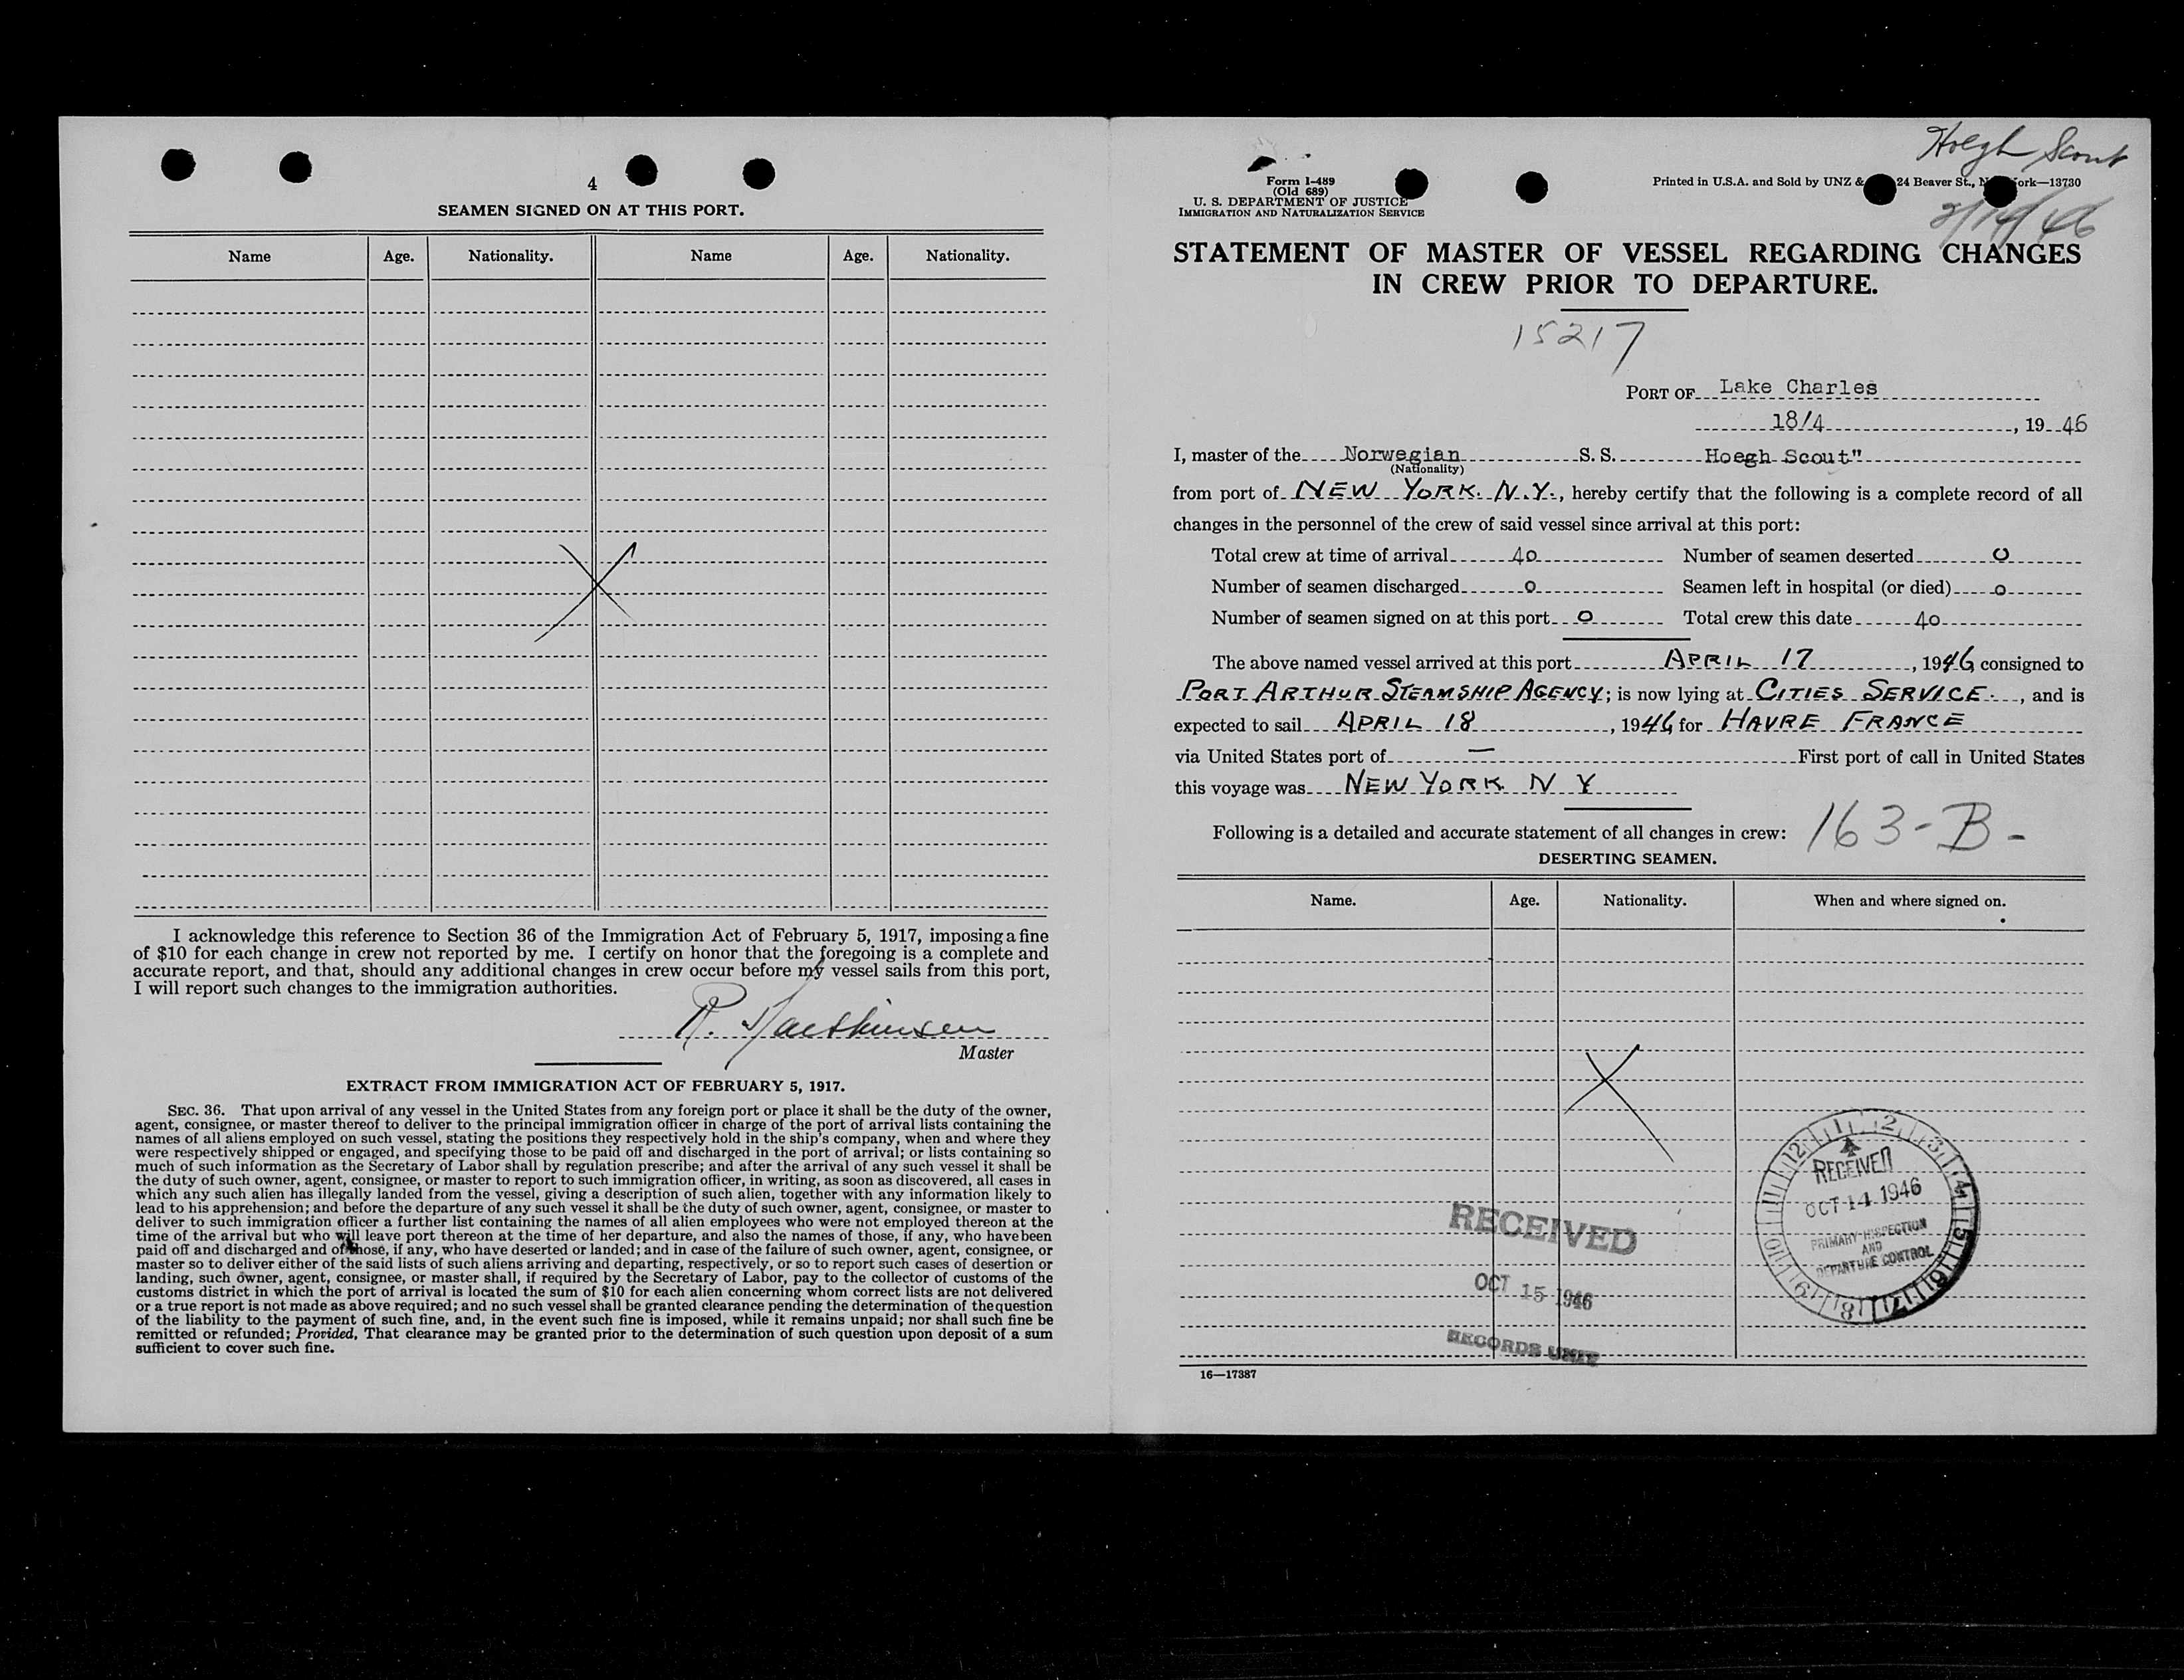 4
SEAMEN SIGNED ON AT THIS PORT.
Name Age. Nationality. Name Age. Nationality.
I acknowledge this reference to Section 36 of the Immigration Act of February 5, 1917, imposing a fine
of $10 for each change in crew not reported by me. I certify on honor that the foregoing is a complete and
accurate report, and that, should any additional changes in crew occur before my vessel sails from this port,
I will report such changes to the immigration authorities.
R.
Master
EXTRACT FROM IMMIGRATION ACT OF FEBRUARY 5, 1917.
SEC. 36. That upon arrival of any vessel in the United States from any foreign port or place it shall be the duty of the owner,
agent, consignee, or master thereof to deliver to the principal immigration officer in charge of the port of arrival lists containing the
names of all aliens employed on such vessel, stating the positions they respectively hold in the ship's company, when and where they
were respectively shipped or engaged, and specifying those to be paid off and discharged in the port of arrival; or lists containing so
much of such information as the Secretary of Labor shall by regulation prescribe; and after the arrival of any such vessel it shall be
the duty of such owner, agent, consignee, or master to report to such immigration officer, in writing, as soon as discovered, all cases in
which any such alien has illegally landed from the vessel, giving a description of such alien, together with any information likely to
lead to his apprehension; and before the departure of any such vessel it shall be the duty of such owner, agent, consignee, or master to
deliver to such immigration officer a further list containing the names of all alien employees who were not employed thereon at the
time of the arrival but who will leave port thereon at the time of her departure, and also the names of those, if any, who have been
paid off and discharged and of those, if any, who have deserted or landed; and in case of the failure of such owner, agent, consignee, or
master so to deliver either of the said lists of such aliens arriving and departing, respectively, or so to report such cases of desertion or
landing, such owner, agent, consignee, or master shall, if required by the Secretary of Labor, pay to the collector of customs of the
customs district in which the port of arrival is located the sum of $10 for each alien concerning whom correct lists are not delivered
or a true report is not made as above required; and no such vessel shall be granted clearance pending the determination of the question
of the liability to the payment of such fine, and, in the event such fine is imposed, while it remains unpaid; nor shall such fine be
remitted or refunded; Provided, That clearance may be granted prior to the determination of such question upon deposit of a sum
sufficient to cover such fine.
Hoegh Scout
Form I-489
(Old 689)
U. S. DEPARTMENT OF JUSTICE
IMMIGRATION AND NATURALIZATION SERVICE
Printed in U.S.A. and Sold by UNZ & 24 Beaver St., N ork—13730
2/14/46
STATEMENT OF MASTER OF VESSEL REGARDING CHANGES
IN CREW PRIOR TO DEPARTURE.
15217
PORT OF Lake Charles
18/4, 19 46
I, master of the Norwegian S. S. Hoegh Scout"
(Nationality)
from port of NEW YORK. N.Y., hereby certify that the following is a complete record of all
changes in the personnel of the crew of said vessel since arrival at this port:
Total crew at time of arrival 40 Number of seamen deserted 0
Number of seamen discharged 0 Seamen left in hospital (or died) 0
Number of seamen signed on at this port 0 Total crew this date 40
The above named vessel arrived at this port APRIL 17, 1946, consigned to
PORT ARTHUR STEAMSHIP AGENCY; is now lying at CITIES SERVICE., and is
expected to sail APRIL 18, 1946 for HAVRE FRANCE
via United States port of — First port of call in United States
this voyage was NEW YORK N Y
Following is a detailed and accurate statement of all changes in crew: 163-B-
DESERTING SEAMEN.
Name. Age. Nationality. When and where signed on.
12 1 2 3 4 5 6 7 8 9 10 11
RECEIVED
OCT 14 1946
PRIMARY INSPECTION
AND
DEPARTURE CONTROL
RECEIVED
OCT 15 1946
RECORDS UNIT
16—17387